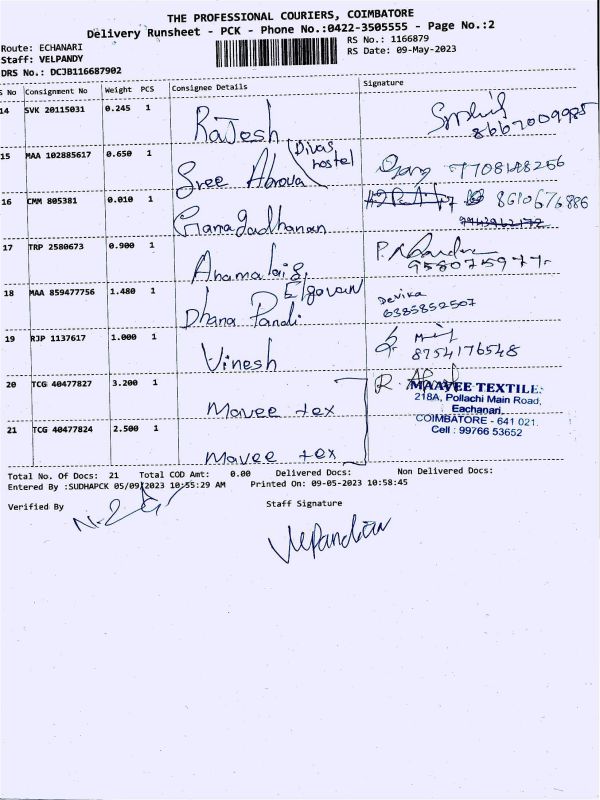 THE PROFESSIONAL COURIERS, COIMBATORE
Delivery Runsheet - PCK - Phone No.:0422-3505555 - Page No.:2
Route: ECHANARI
RS No.: 1166879
Staff: VELPANDY
RS Date: 09-May-2023
DRS No.: DCJB116687902
S No Consignment No Weight PCS Consignee Details Signature
14 SVK 20115031 0.245 1 Rajesh
15 MAA 102885617 0.650 1 Sree Divas hostel
7708148256
16 CMM 805381 0.010 1 Gangadharan 8610676886
17 TRP 2580673 0.900 1
18 MAA 859477756 1.480 1 Dhana Pandi Devika
6385852507
19 RJP 1137617 1.000 1 Vinesh
8754176548
20 TCG 40477827 3.200 1 Mavee tex
MAAVEE TEXTILE.
218A, Pollachi Main Road,
Eachanari,
COIMBATORE - 641 021.
Cell : 99766 53652
21 TCG 40477824 2.500 1 Mavee tex
Total No. Of Docs: 21 Total COD Amt: 0.00 Delivered Docs: Non Delivered Docs:
Entered By :SUDHAPCK 05/09/2023 10:55:29 AM Printed On: 09-05-2023 10:58:45
Verified By Staff Signature